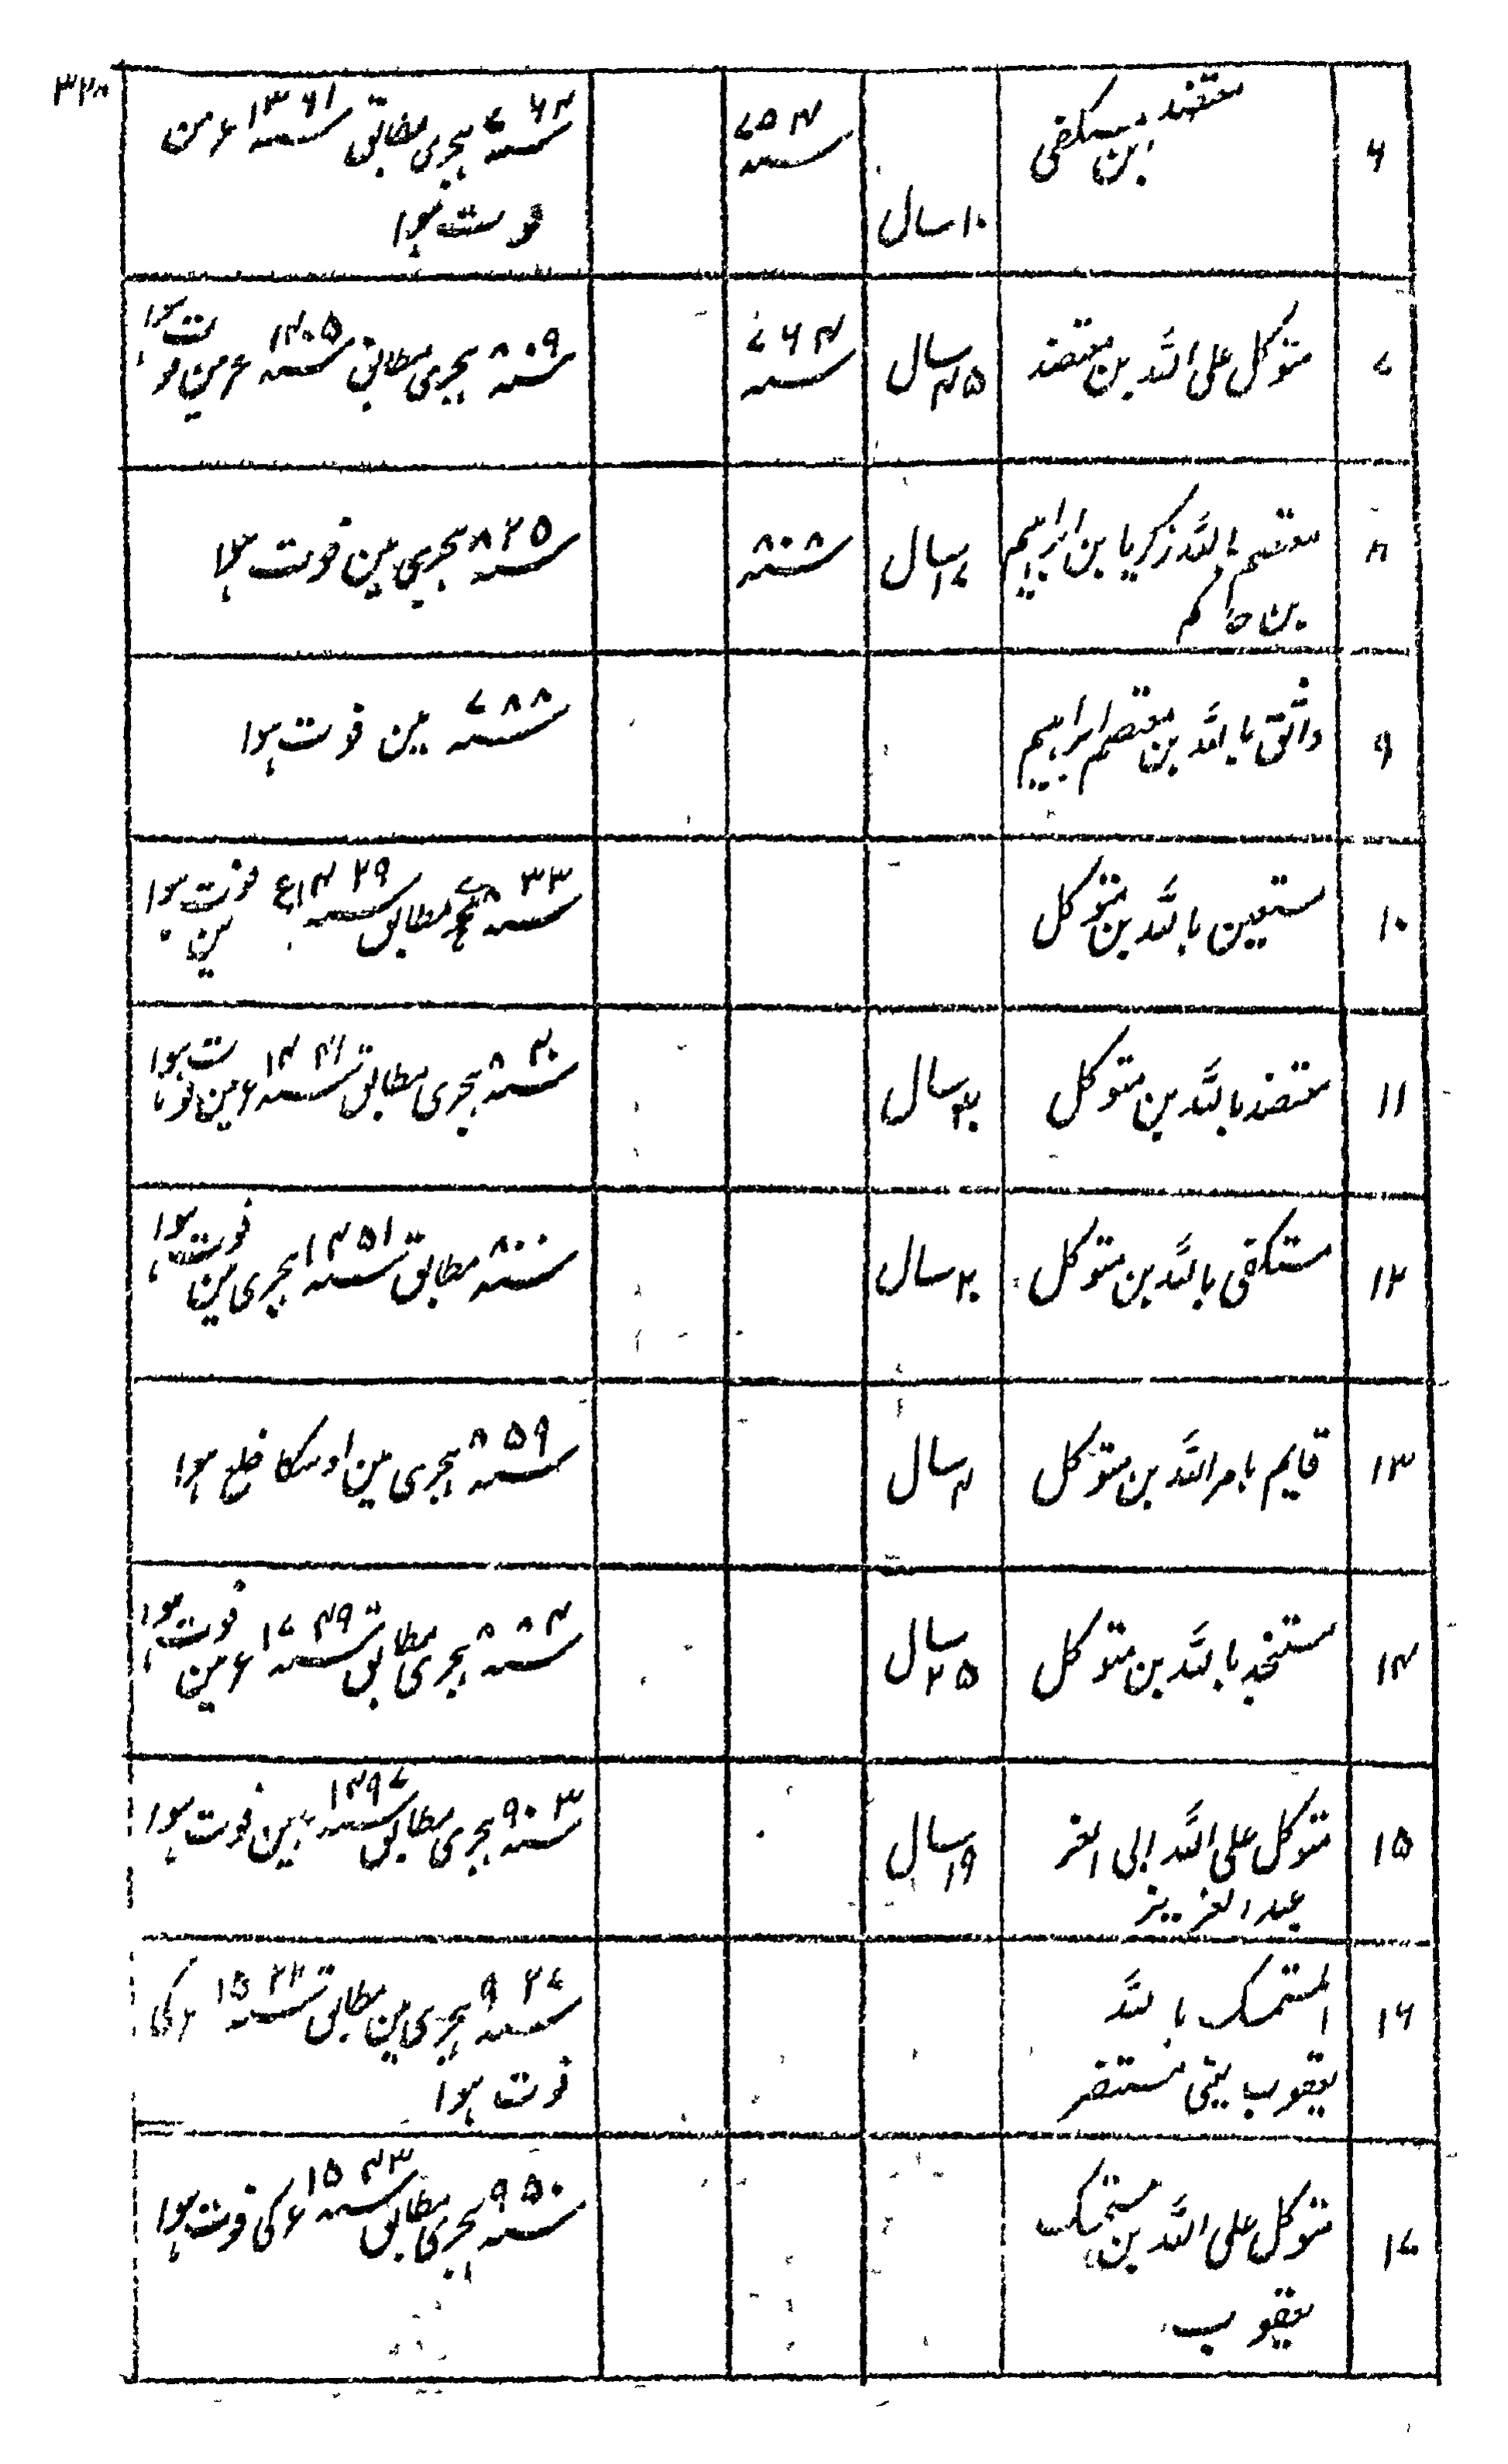 ۳۲۸
۶ معتضد بن مستکفی ۱۰ سال سنہ ۷۵۴ سنہ ۷۶۴ ہجری مطابق سنہ ۱۳۶۱ء من
فوت ہوا
۷ متوکل علی اللہ بن معتضد ۴۵ سال سنہ ۷۶۴ سنہ ۸۰۹ ہجری مطابق سنہ ۱۴۰۵ء مین فوت ہوا
۸ معتصم باللہ زکریا بن ابراہیم ۱۷ سال سنہ ۸۰۸ سنہ ۸۲۵ ہجری مین فوت ہوا
بن حاکم
۹ واثق باللہ بن معتصم ابراہیم سنہ ۷۸۸ مین فوت ہوا
۱۰ مستعین باللہ بن متوکل سنہ ۸۳۳ ہجری مطابق سنہ ۱۴۲۹ء مین فوت ہوا
۱۱ معتضد باللہ بن متوکل ۳۰ سال سنہ ۸۴۰ ہجری مطابق سنہ ۱۴۴۱ء مین فوت ہوا
۱۲ مستکفی باللہ بن متوکل ۲۰ سال سنہ ۸۰۰ مطابق سنہ ۱۴۵۱ ہجری مین فوت ہوا
۱۳ قایم بامر اللہ بن متوکل ۴ سال سنہ ۸۵۹ ہجری مین اوسکا خلع ہوا
۱۴ مستنجد باللہ بن متوکل ۲۵ سال سنہ ۸۸۴ ہجری مطابق سنہ ۱۷۴۹ء مین فوت ہوا
۱۵ متوکل علی اللہ ابی العز ۱۹ سال سنہ ۹۰۳ ہجری مطابق سنہ ۱۴۹۷ء مین فوت ہوا
عبد العزیز
۱۶ المتمسک باللہ سنہ ۹۲۷ ہجری مین مطابق سنہ ۱۵۲۲ء کی
یعقوب یعنی مستنصر فوت ہوا
۱۷ متوکل علی اللہ بن متمسک سنہ ۹۵۰ ہجری مطابق سنہ ۱۵۴۳ء کی فوت ہوا
یعقوب